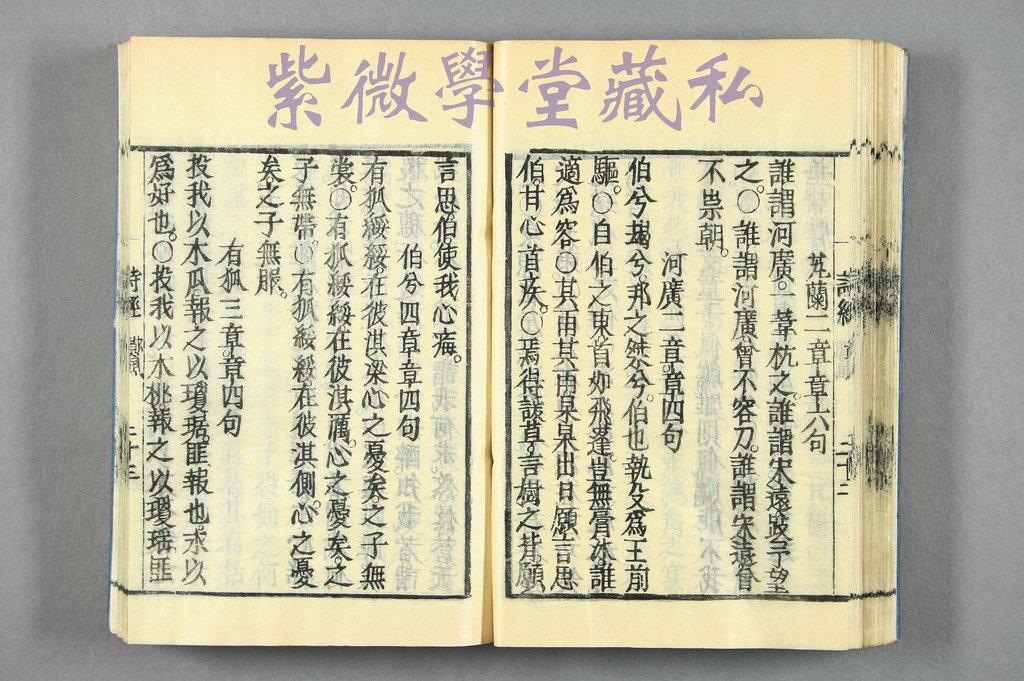 紫微學堂藏私
芄蘭二章章六句
誰謂河廣。一葦杭之。誰謂宋遠。跂予望
之。〇誰謂河廣。曾不容刀。誰謂宋遠。曾
不崇朝。
河廣二章。章四句
伯兮朅兮。邦之桀兮。伯也執殳。爲王前
驅。〇自伯之東。首如飛蓬。豈無膏沐。誰
適爲容。〇其雨其雨。杲杲出日。願言思
伯。甘心首疾。〇焉得諼草。言樹之背。願
言思伯。使我心痗。
伯兮四章章四句
有狐綏綏。在彼淇梁。心之憂矣。之子無
裳。〇有狐綏綏。在彼淇厲。心之憂矣。之
子無帶。〇有狐綏綏。在彼淇側。心之憂
矣。之子無服。
有狐三章。章四句
投我以木瓜。報之以瓊琚。匪報也。永以
爲好也。〇投我以木桃。報之以瓊瑤。匪
詩經 二十三